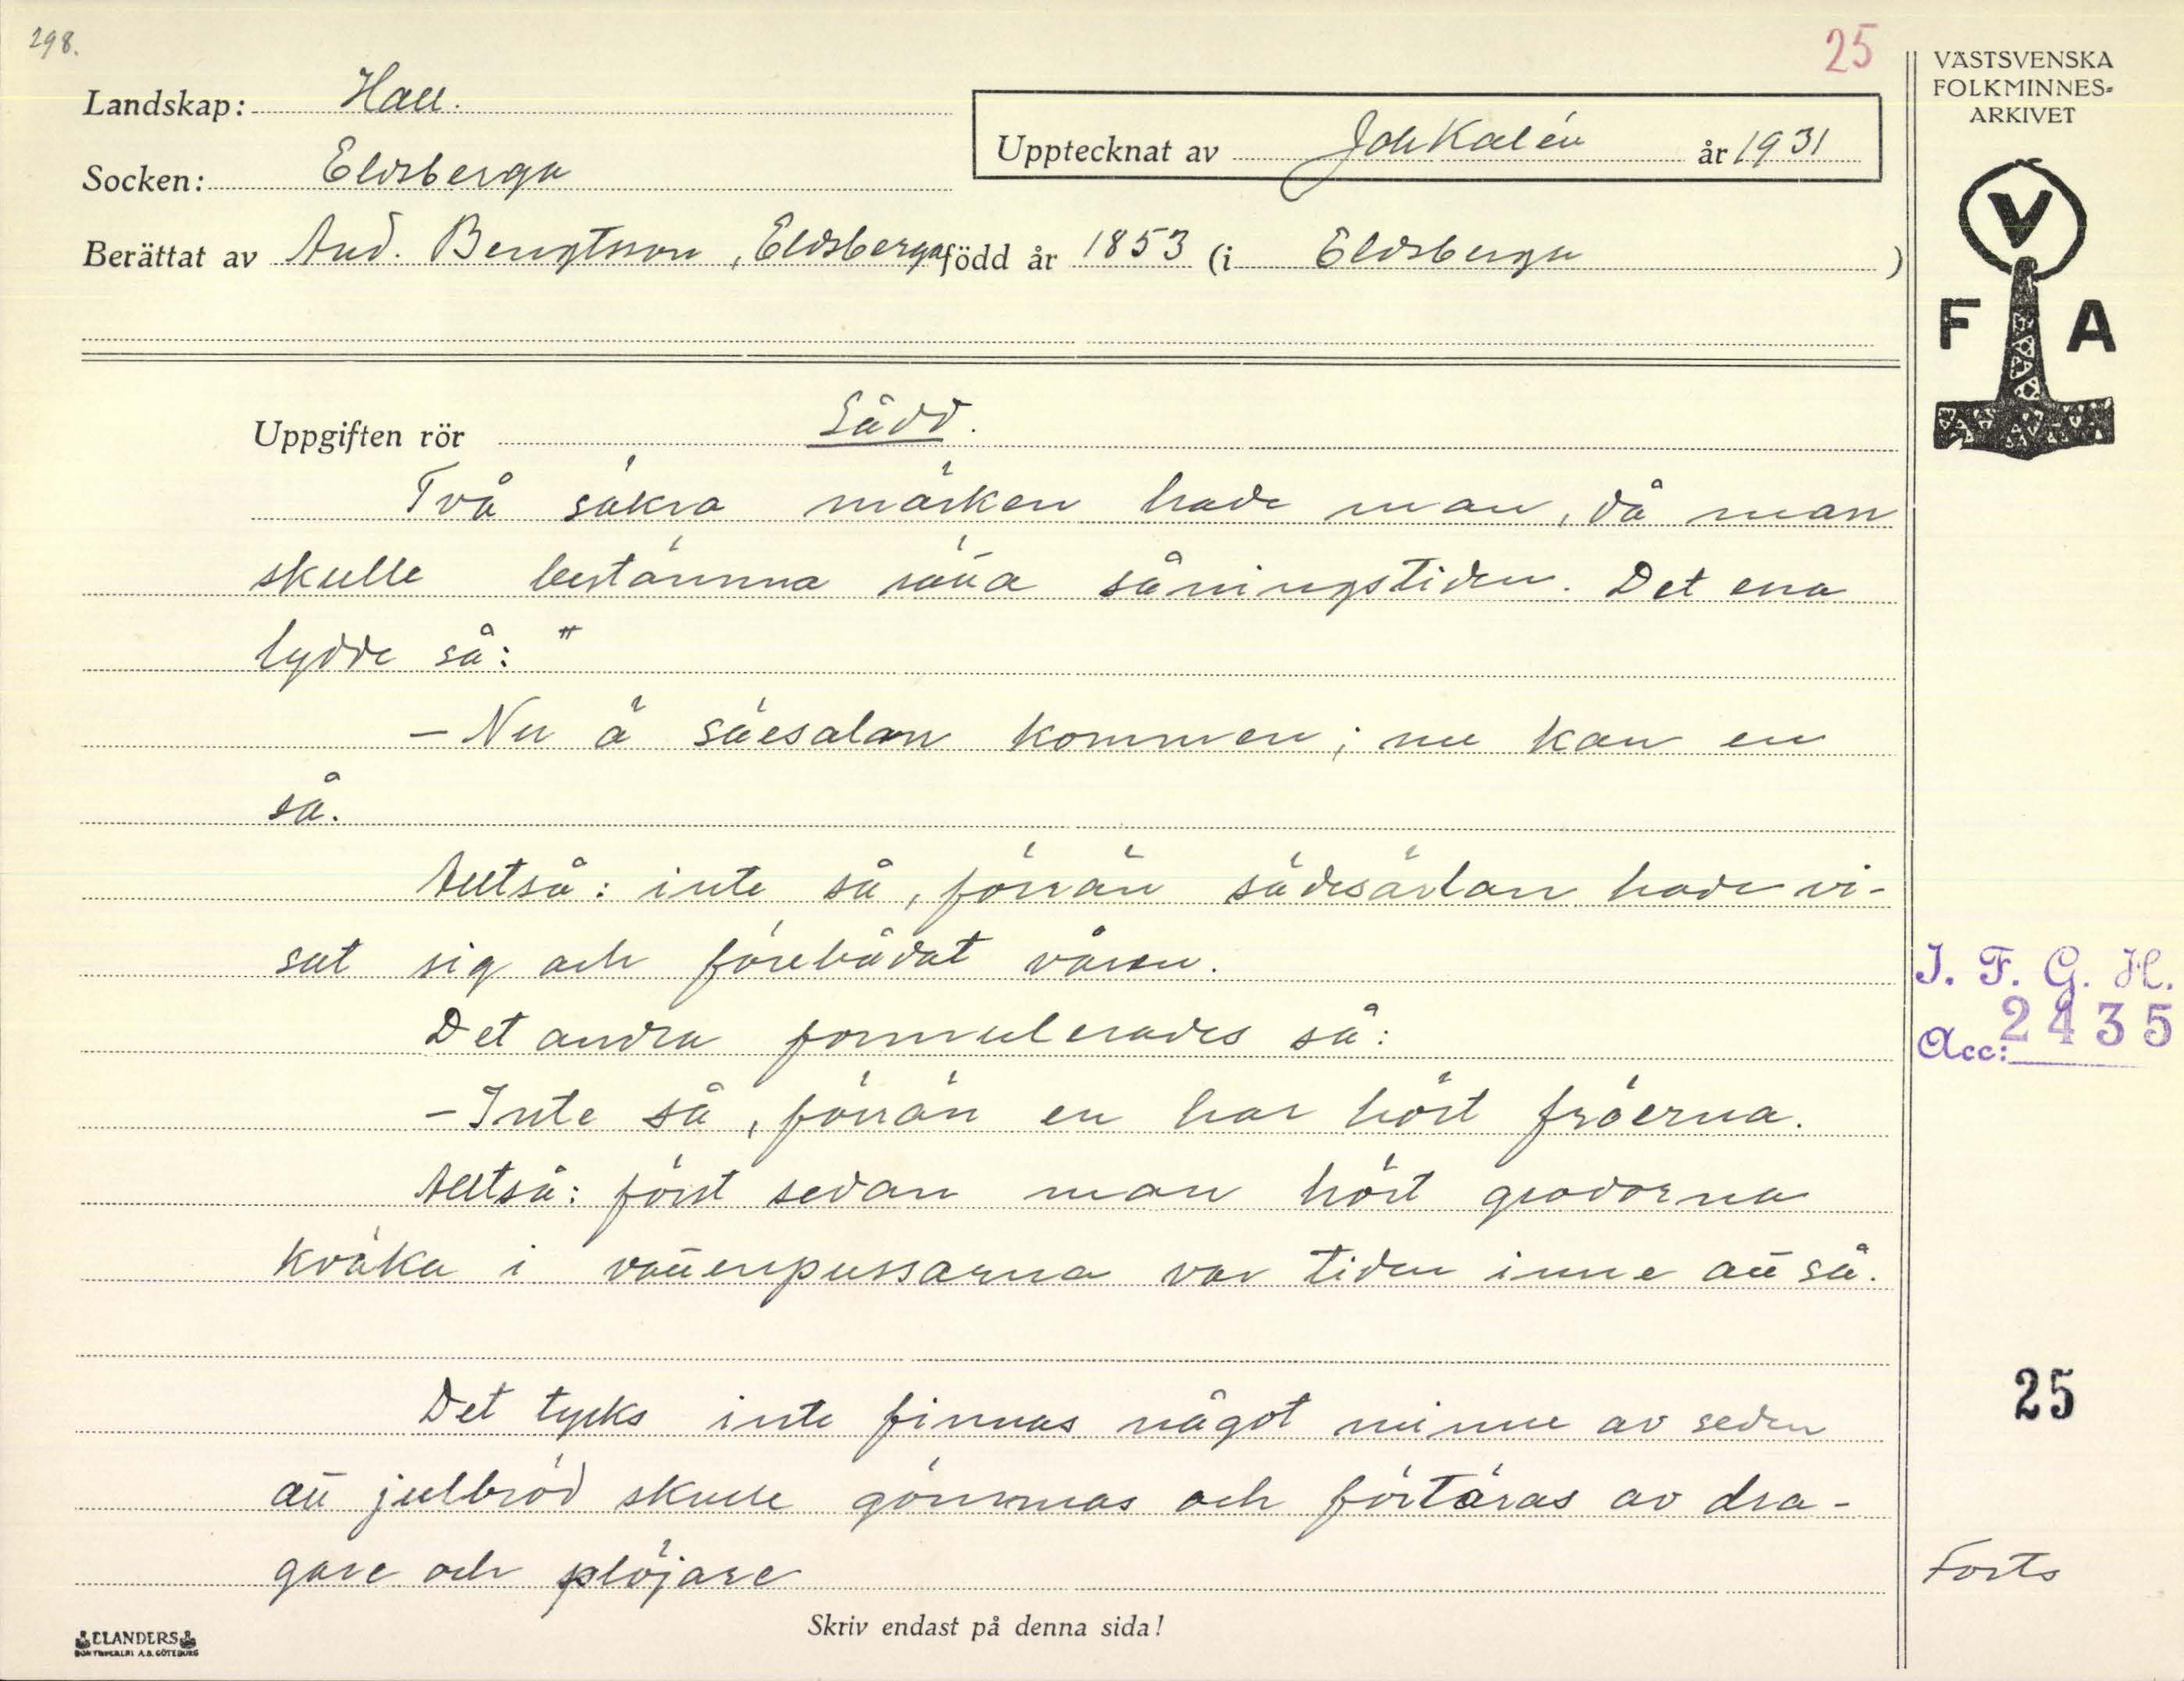 298.
25
VÄSTSVENSKA
FOLKMINNES-
ARKIVET
Landskap: Hall.
Upptecknat av Joh Kalén år 1931
Socken: Eldsberga
Berättat av And. Bengtsson, Eldsberga född år 1853 (i Eldsberga )
V
F A
Uppgiften rör Sådd.
Två säkra märken hade man, då man
skulle bestämma rätta såningstiden. Det ena
lydde så: "
- Nu ä säesalan kommen; nu kan en
så.
Alltså: inte så, förrän sädesärlan hade vi-
sat sig och förebådat våren.
Det andra formulerades så:
- Inte så, förrän en har hört fröerna.
Alltså: först sedan man hört grodorna
kväka i vattenpussarna var tiden inne att så.
Det tycks inte finnas något minne av seden
att julbröd skulle gömmas och förtäras av dra-
gare och plöjare
I. F. G. H.
Acc: 2435
25
Forts
Skriv endast på denna sida!
ELANDERS
BOKTRYCKERI A.B. GÖTEBORG